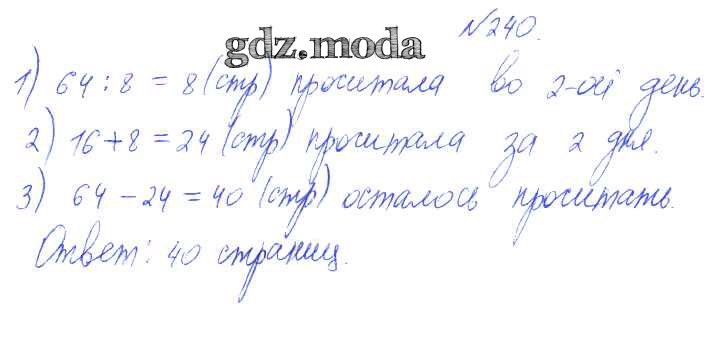 №240.
gdz.moda
1) 64 : 8 = 8 (стр) прочитала во 2-ой день.
2) 16 + 8 = 24 (стр) прочитала за 2 дня.
3) 64 - 24 = 40 (стр) осталось прочитать.
Ответ: 40 страниц.